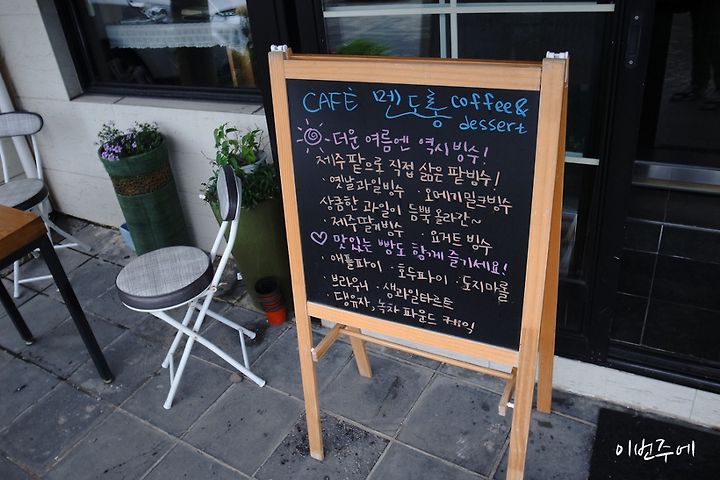 CAFÉ 멘도롱 coffee&
dessert
더운 여름엔 역시 빙수!
제주 팥으로 직접 삶은 팥빙수!
· 옛날과일빙수 · 오메기밀크빙수
상큼한 과일이 듬뿍 올라간~
· 제주딸기빙수 · 요거트 빙수
♡ 맛있는 빵도 함께 즐기세요!
· 애플파이 · 호두파이 · 도지마롤
· 브라우니 · 생과일타르트
· 댕유자, 녹차 파운드 케익
이번주에